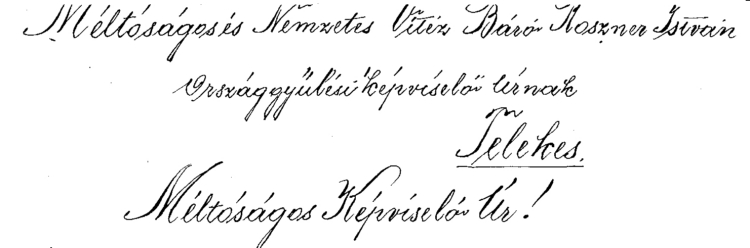 Méltóságos és Nemzetes Vitéz Báró Roszner István
Országgyűlési képviselő Úrnak
Telekes.
Méltóságos Képviselő Úr!